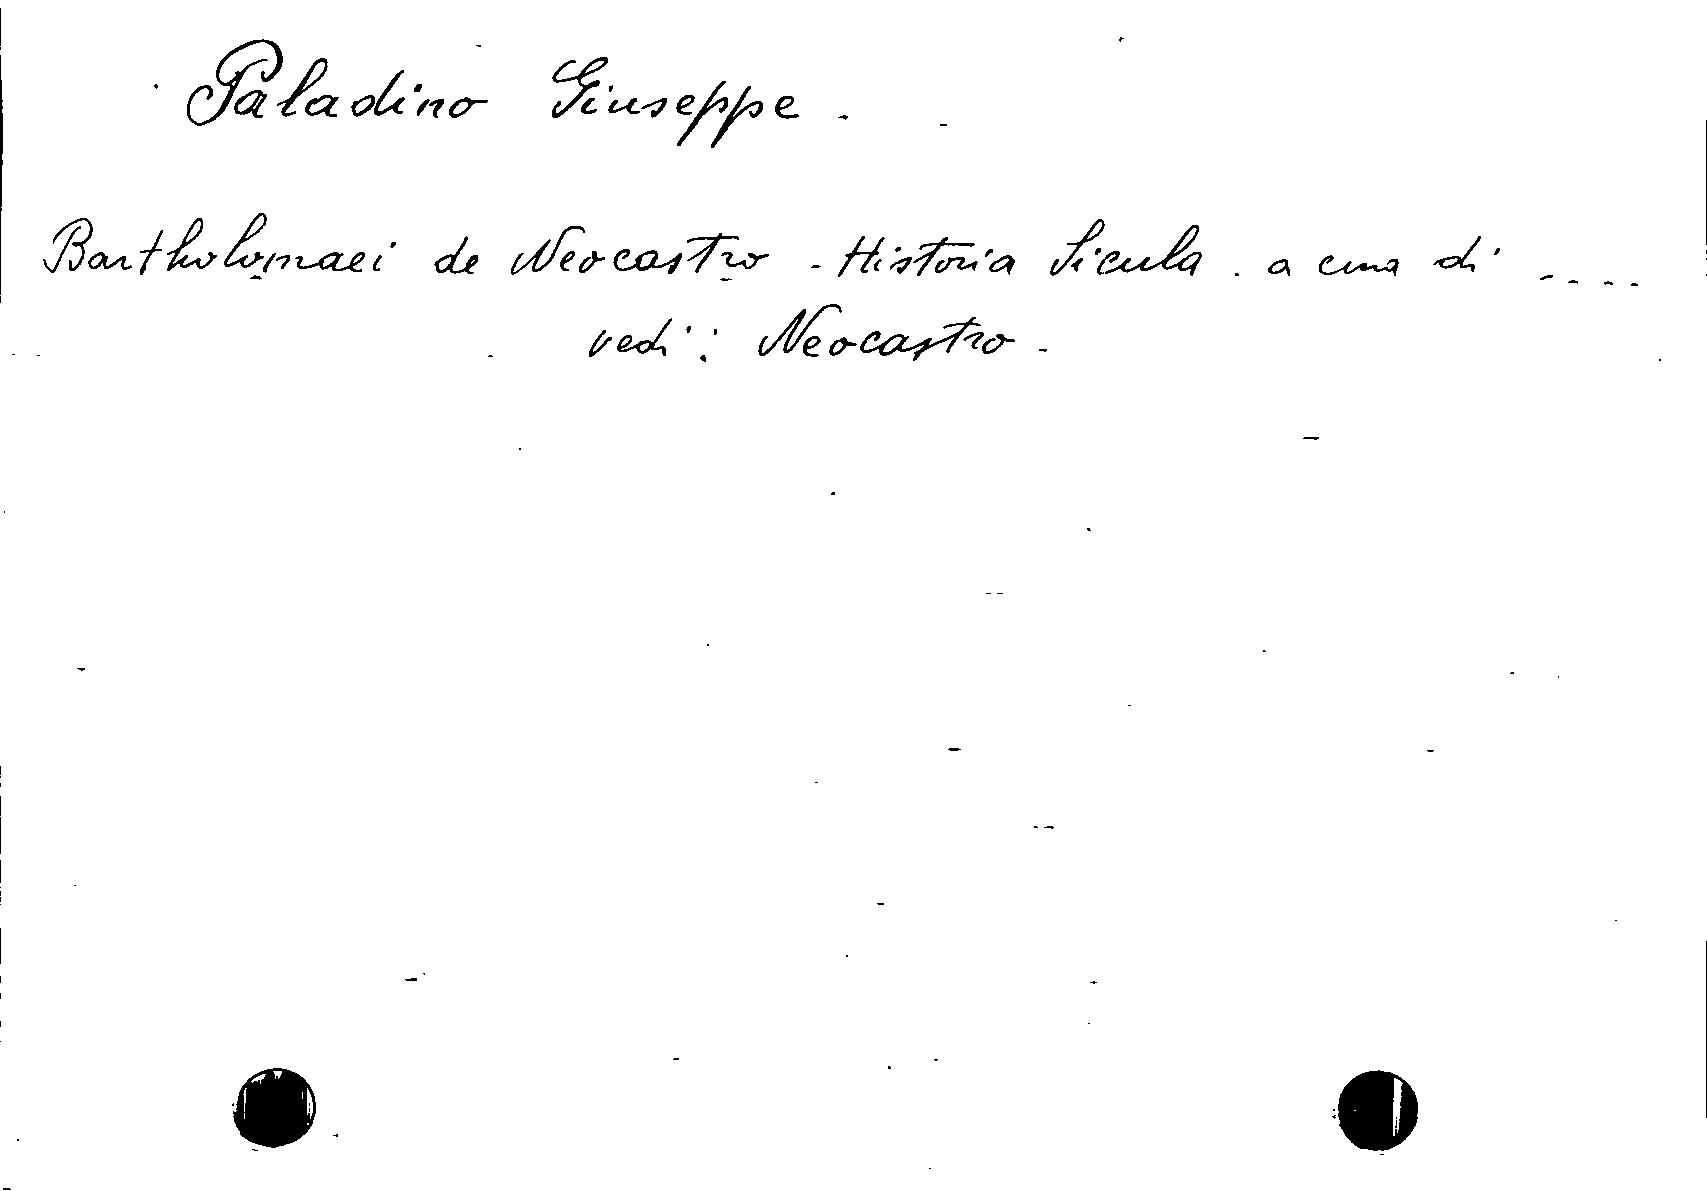 Paladino Giuseppe.
Bartholomaei de Neocastro - Historia Sicula. a cura di ....
vedi: Neocastro.